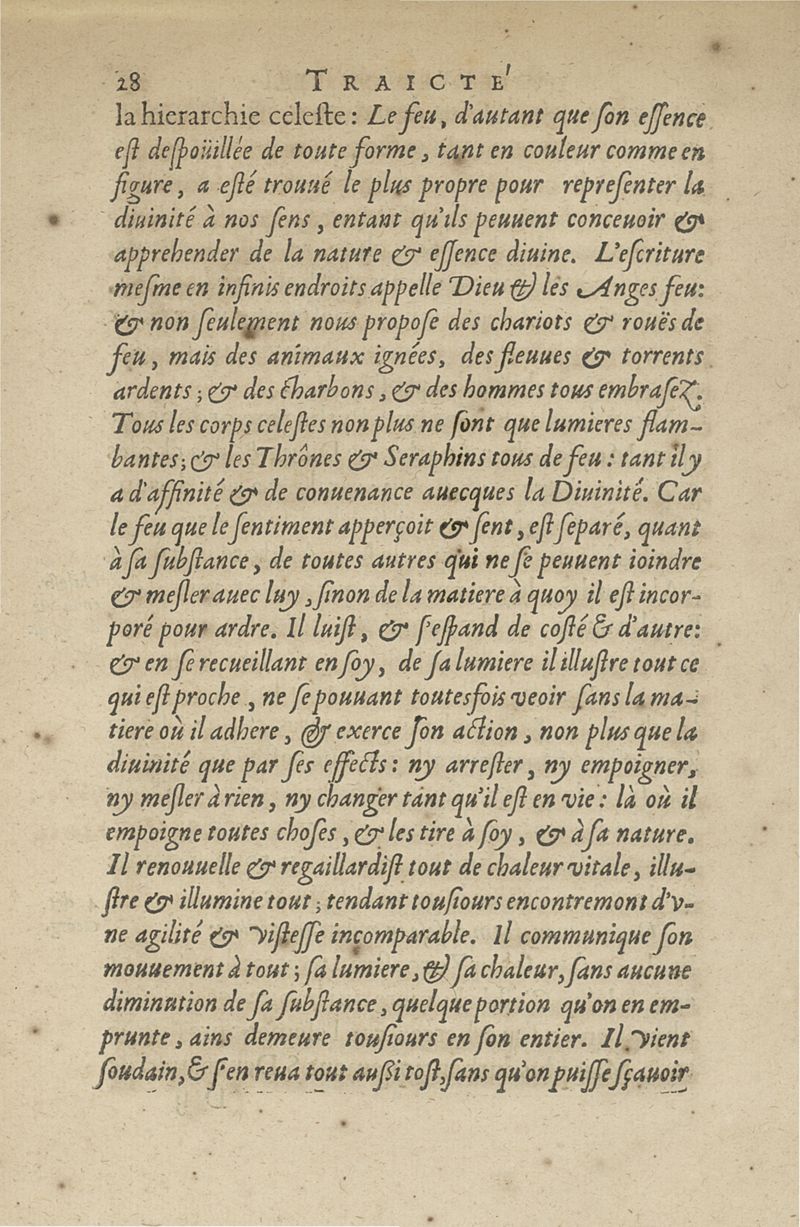 28 TRAICTÉ
la hierarchie celeste: Le feu, d'autant que ſon eſſence
eſt deſpoüillée de toute forme, tant en couleur comme en
figure, a eſté trouué le plus propre pour repreſenter la
diuinité à nos ſens, entant qu'ils peuuent conceuoir &
apprehender de la nature & eſſence diuine. L'eſcriture
meſme en infinis endroits appelle Dieu & les Anges feu:
& non ſeulement nous propoſe des chariots & rouës de
feu, mais des animaux ignées, des fleuues & torrents
ardents; & des charbons, & des hommes tous embraſez.
Tous les corps celeſtes non plus ne ſont que lumieres flam-
bantes; & les Thrônes & Seraphins tous de feu: tant il y
a d'affinité & de conuenance auecques la Diuinité. Car
le feu que le ſentiment apperçoit & ſent, eſt ſeparé, quant
à ſa ſubſtance, de toutes autres qui ne ſe peuuent ioindre
& meſler auec luy, ſinon de la matiere à quoy il eſt incor-
poré pour ardre. Il luiſt, & ſ'eſpand de coſté & d'autre:
& en ſe recueillant en ſoy, de ſa lumiere il illuſtre tout ce
qui eſt proche, ne ſe pouuant toutesfois veoir ſans la ma-
tiere où il adhere, & exerce ſon action, non plus que la
diuinité que par ſes effects: ny arreſter, ny empoigner,
ny meſler à rien, ny changer tant qu'il eſt en vie: là où il
empoigne toutes choſes, & les tire à ſoy, & à ſa nature.
Il renouuelle & regaillardiſt tout de chaleur vitale, illu-
ſtre & illumine tout; tendant touſiours encontremont d'v-
ne agilité & viſteſſe incomparable. Il communique ſon
mouuement à tout; ſa lumiere, & ſa chaleur, ſans aucune
diminution de ſa ſubſtance, quelque portion qu'on en em-
prunte, ains demeure touſiours en ſon entier. Il vient
ſoudain, & ſ'en reua tout auſſi toſt, ſans qu'on puiſſe ſçauoir